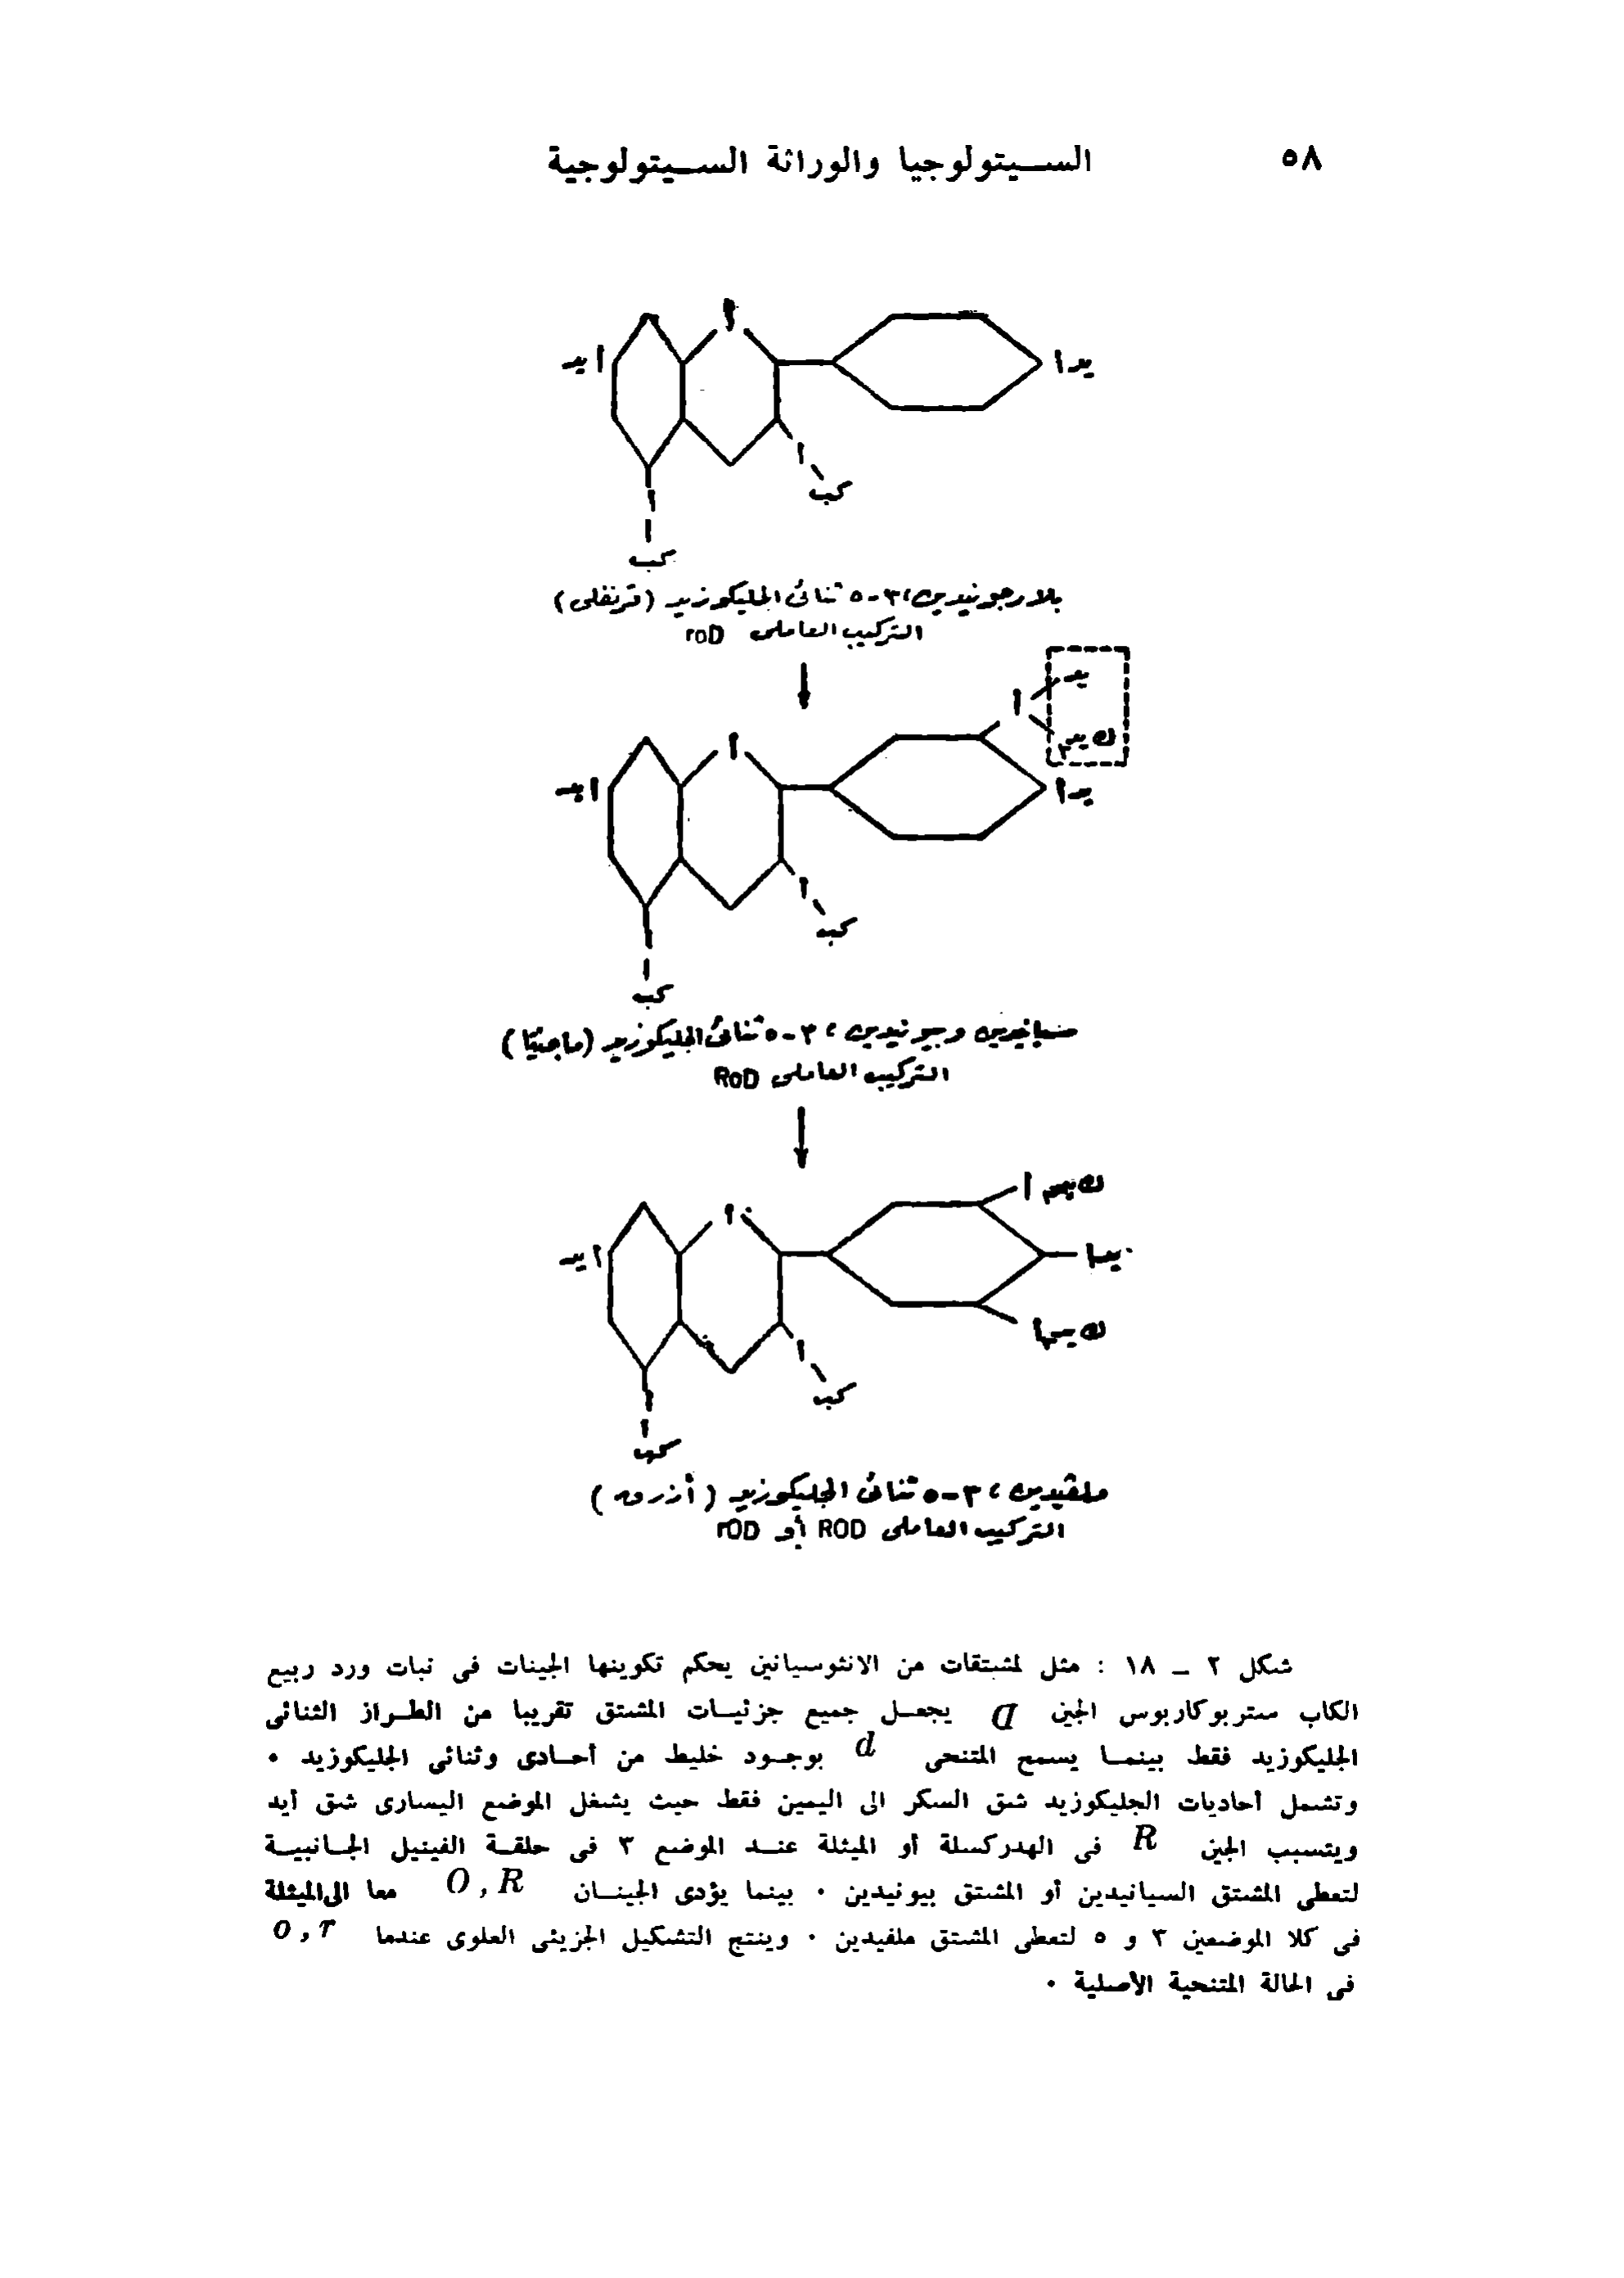 ٥٨
السيتولوجيا والوراثة السيتولوجية
أ
ايد
يدا
ا
كب
ا
كب
بلارجونيدين، ٣-٥ ثنائى الجليكوزيد (قرنفلى)
التركيب العاملى roD
يد
ا
ك يد٣
أ
ايد
يدا
ا
كب
كب
سيانيدين وبيونيدين، ٣-٥ ثنائى الجليكوزيد (ماجنتا)
التركيب العاملى RoD
ك يد٣ ا
أ
ايد
يدا
ك يد٣ ا
ا
كب
ا
كب
ملفيدين، ٣-٥ ثنائى الجليكوزيد (أزرق)
التركيب العاملى ROD أو rOD
شكل ٢ - ١٨ : مثل لمشتقات من الانثوسيانين يحكم تكوينها الجينات فى نبات ورد ربيع
الكاب ستربوكاربوس الجين D يجعل جميع جزئيات المشتق تقريبا من الطراز الثنائى
الجليكوزيد فقط بينما يسمح المتنحى d بوجود خليط من أحادى وثنائى الجليكوزيد ٠
وتشمل أحاديات الجليكوزيد شق السكر الى اليمين فقط حيث يشغل الموضع اليسارى شق أيد
ويتسبب الجين R فى الهدركسلة أو الميثلة عند الموضع ٣ فى حلقة الفينيل الجانبية
لتعطى المشتق السيانيدين أو المشتق بيونيدين ٠ بينما يؤدى الجينان O , R معا الى الميثلة
فى كلا الموضعين ٣ و ٥ لتعطى المشتق ملفيدين ٠ وينتج التشكيل الجزيئى العلوى عندما o , r
فى الحالة المتنحية الأصلية ٠